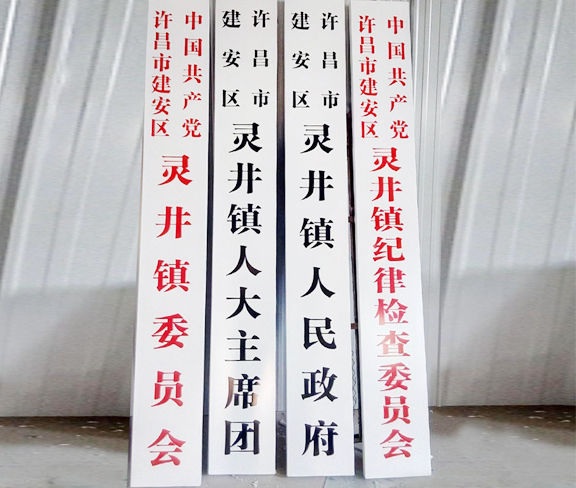 中国共产党
许昌市建安区
灵井镇委员会
许昌市
建安区
灵井镇人大主席团
许昌市
建安区
灵井镇人民政府
中国共产党
许昌市建安区
灵井镇纪律检查委员会